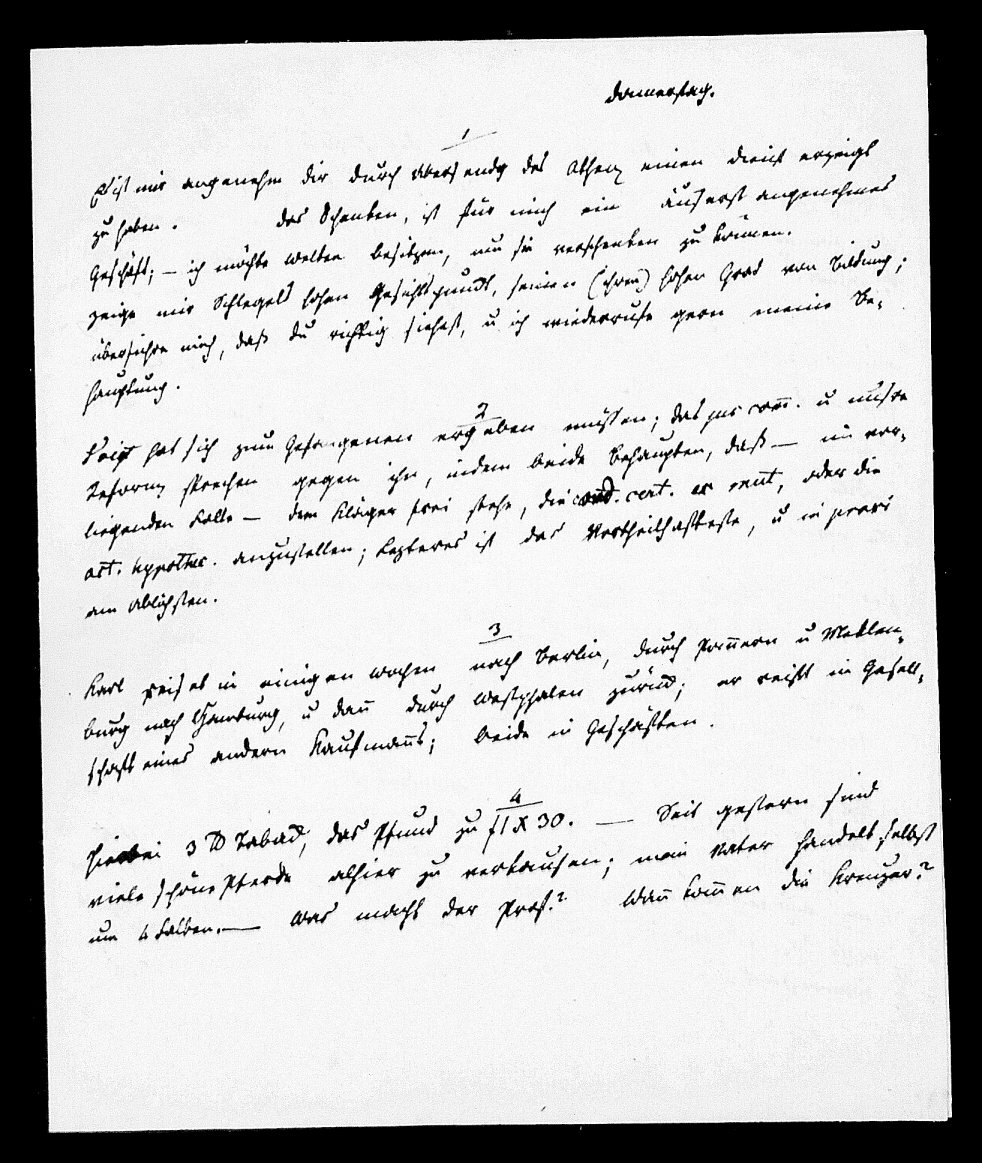 Donnerstag.
1
Es ist mir angenehm dir durch Übersendg des Athen einen Dienst erzeigt
zu haben. Das Schenken, ist für mich ein äuserst angenehmes
Geschäft; – ich möchte Welten besitzen, um sie verschenken zu können.
zeige mir Schlegels hohen Gesichtspunkt, seinen (ihren) hohen Grad von Bildung;
überführe mich, daß du richtig siehest, u ich wiederrufe gern meine Be-
hauptung.
2
hat sich zum Gefangenen ergeben müssen; das jus com̄. u unsre
Reform sprechen gegen ihn, indem beide behaupten, daß – im vor-
liegenden Falle – dem Kläger frei stehe, die cond. cert. ex mut, oder die
act. hypothec. anzustellen; Lezteres ist das Vortheilhafteste, u in praxi
am üblichsten.
3
Karl reiset in einigen Wochen nach Berlin, durch Pom̄ern u Meklen-
burg nach Hamburg, u dan̄ durch Westphalen zurück; er reißt in Gesell-
schaft eines andern Kaufman̄s; beide in Geschäften.
4
Hierbei 3 ℔ Taback, das Pfund zu f1 X 30. — Seit gestern sind
viele schöne Pferde alhier zu verkaufen; mein Vater handelt selbst
um 4 Falben. — Was macht der Prof.? Wan̄ kom̄en die Kreuzer?